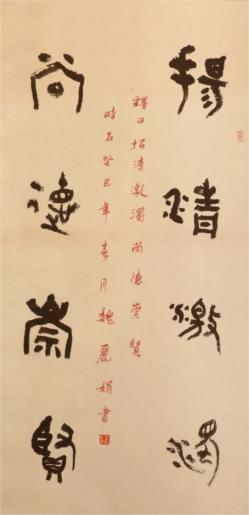 揚清激濁
尚德崇賢
釋曰揚清激濁尚德崇賢
時在癸巳年春月魏麗娟書